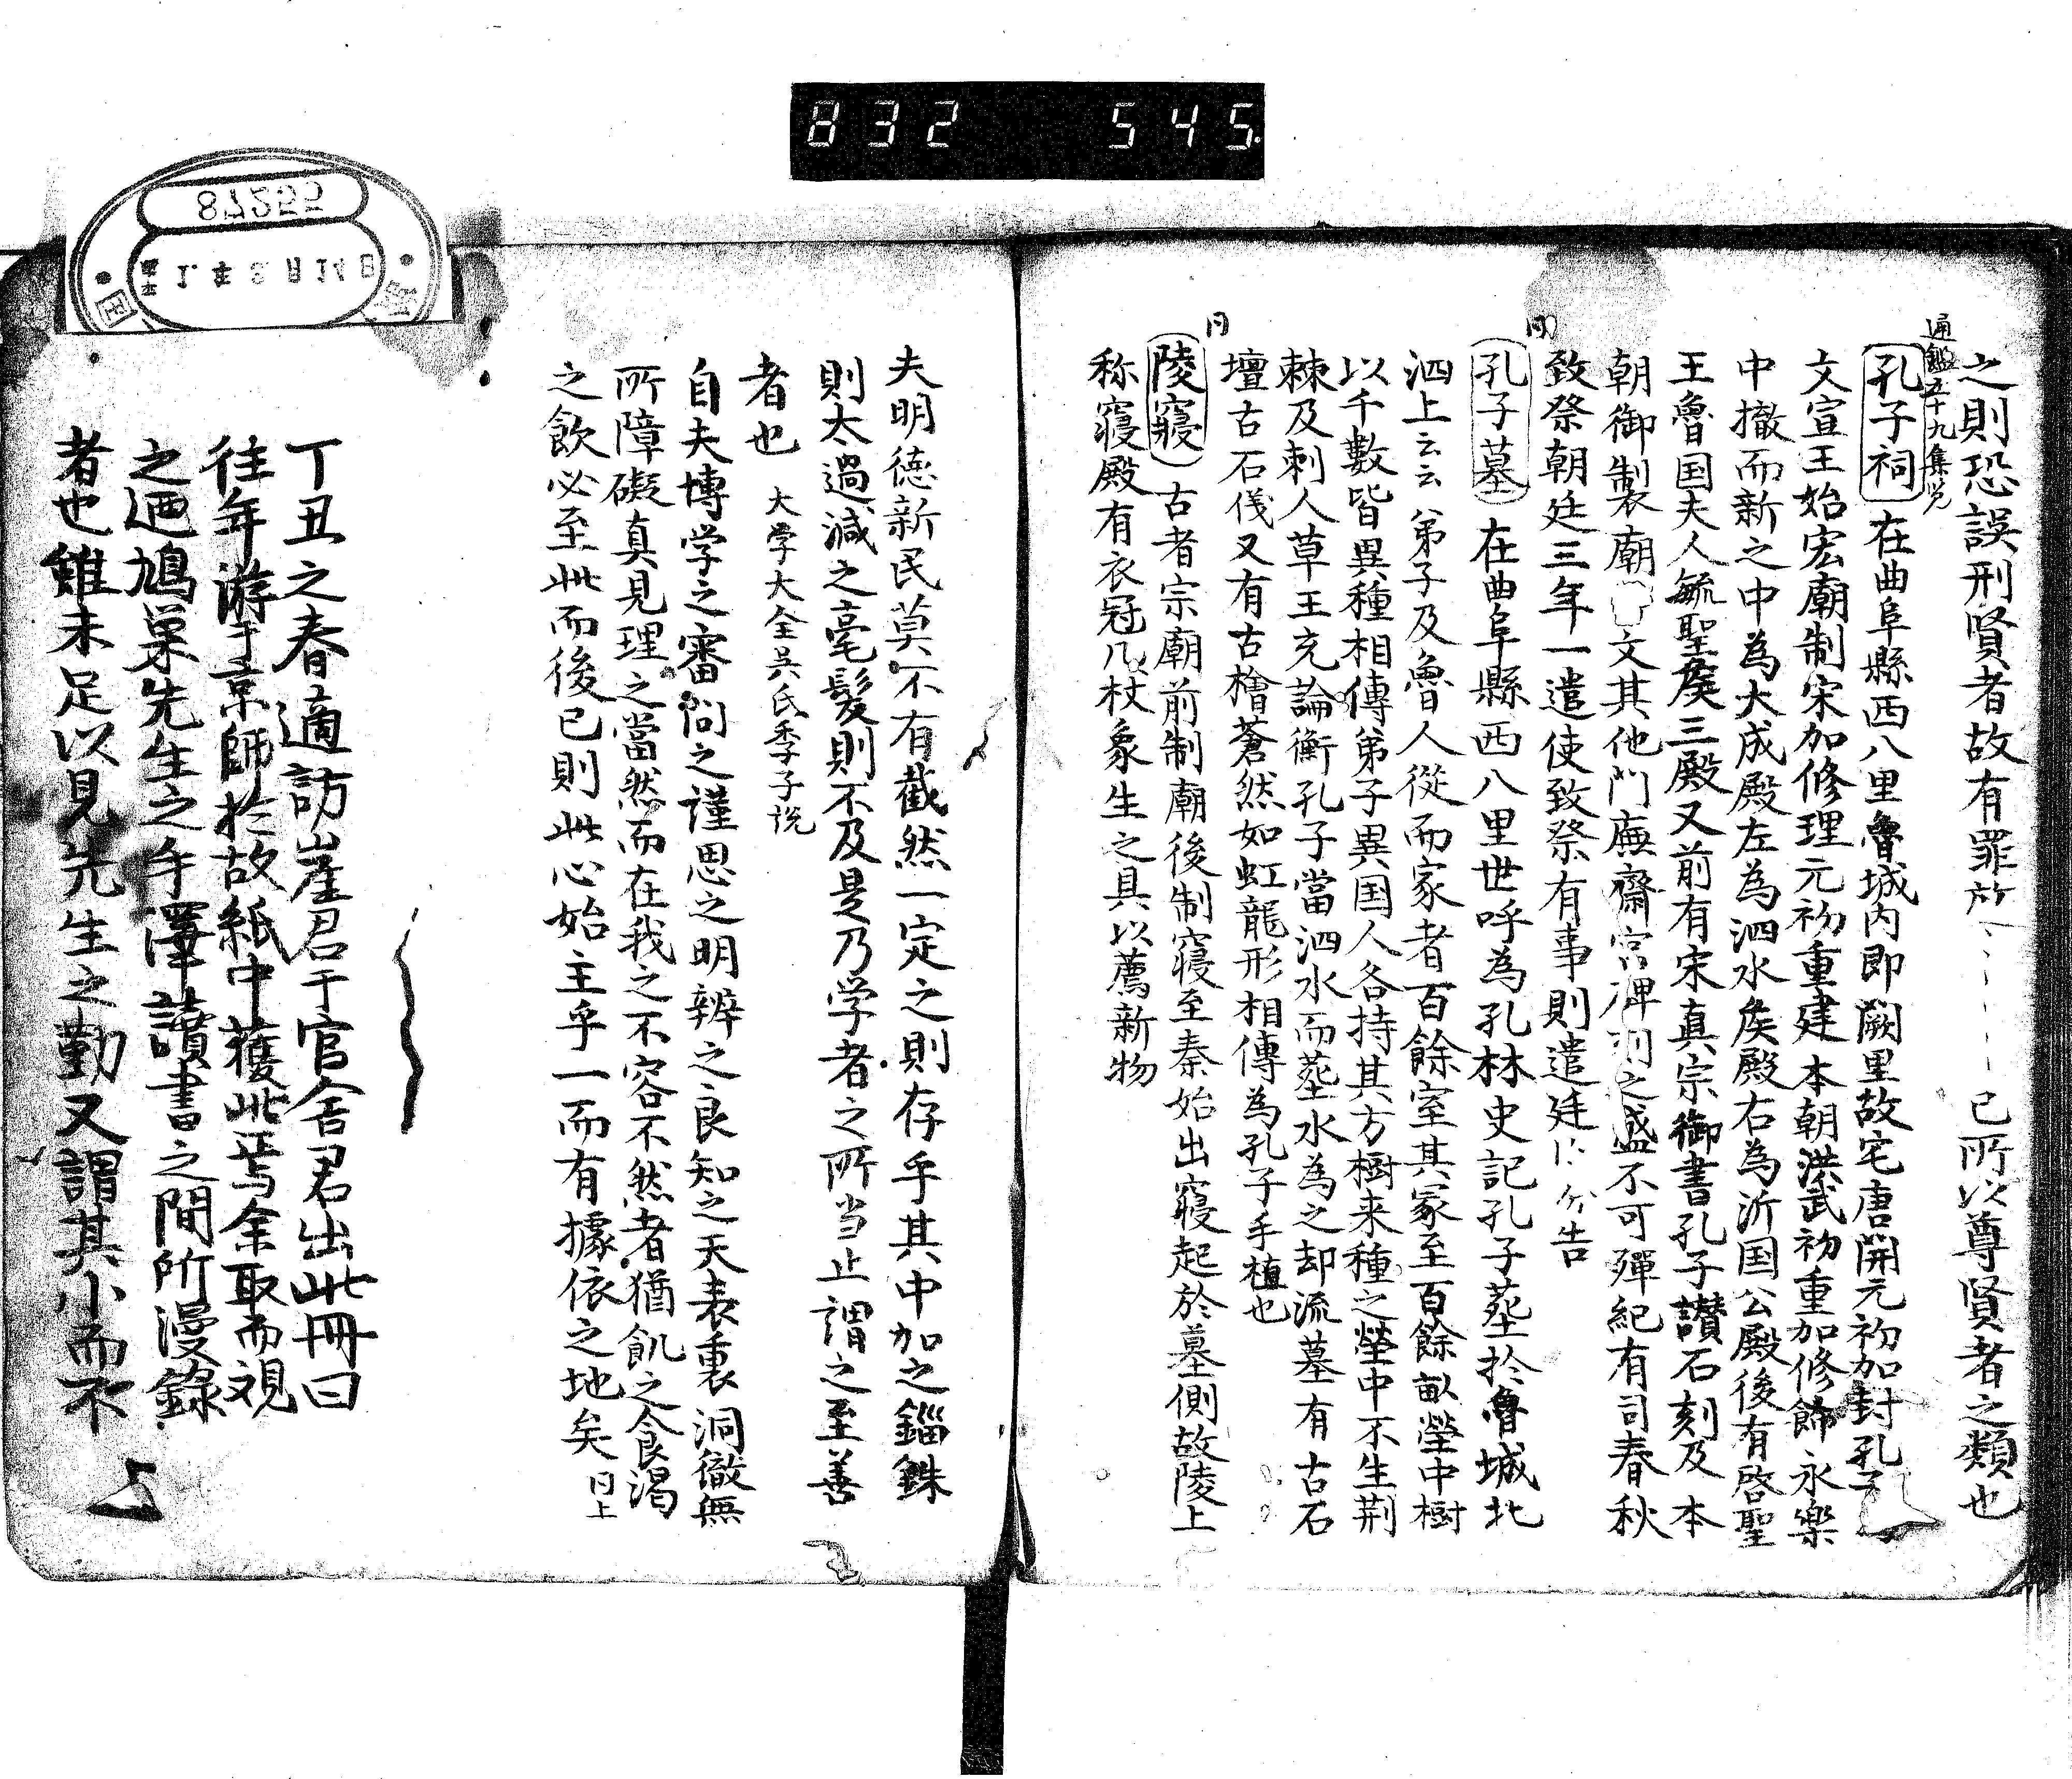 832 545
87255
之則恐誤刑賢者故有罪放 已所以尊賢者之類也
通鑑五十九集覧
孔子祠 在曲阜縣西八里魯城内即闕里故宅唐開元初加封孔子
文宣王始宏廟制宋加修理元初重建本朝洪武初重加修飾永樂
中撤而新之中為大成殿左為泗水矦殿右為沂国公殿後有啓聖
王魯国夫人毓聖矦三殿又前有宋真宗御書孔子讃石刻及本
朝御制裴廟 文其他門廡齋宮碑刻之盛不可殫紀有司春秋
致祭朝廷三年一遣使致祭有事則遣廷 告
同
孔子墓 在曲阜縣西八里世呼為孔林史記孔子葬於魯城北
泗上云云 弟子及魯人從而家者百餘室其冢至百餘畝塋中樹
以千數皆異種相傳弟子異国人各持其方樹来種之塋中不生荆
棘及刺人草王充論衡孔子當泗水而葬水為之却流墓有古石
壇古石儀又有古檜蒼然如虹龍形相傳為孔子手植也
同
陵寝 古者宗廟前制廟後制寝至秦始出寝起於墓側故陵上
称寝殿有衣冠几杖象生之具以薦新物
夫明徳新民莫不有截然一定之則存乎其中加之錙銖
則太過減之毫髪則不及是乃学者之所当止謂之至善
者也 大学大全呉氏季子説
自夫博学之審問之謹思之明辨之良知之天表裏洞徹無
所障礙真見理之當然而在我之不容不然者猶飢之食渇
之飲必至此而後已則此心始主乎一而有據依之地矣 同上
丁丑之春適訪崖君于官舎君出此冊曰
往年游于京師於故紙中獲此焉余取而視
之廼鳩巣先生之手澤讀書之間所漫錄
者也雖未足以見先生之勤又謂其小而不